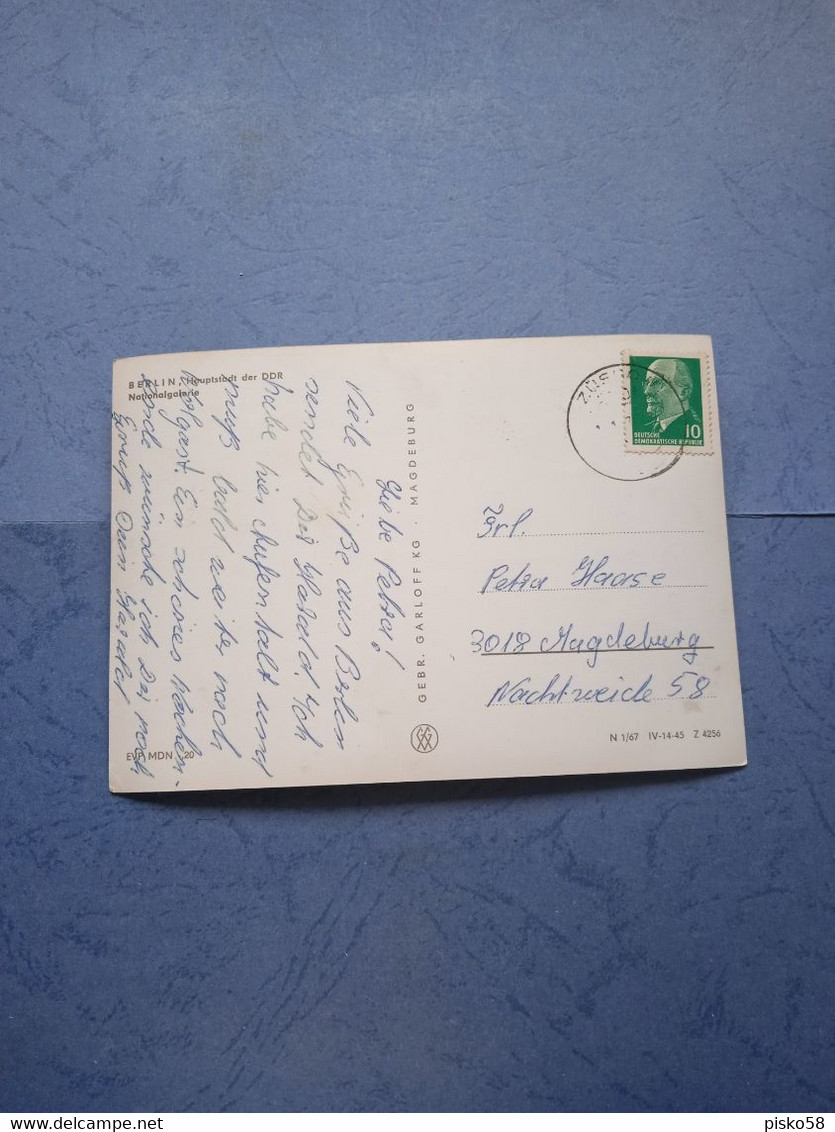 BERLIN, Hauptstadt der DDR
Nationalgalerie
Liebe Petra!
Viele Grüße aus Berlin
sendet Dir Harald. Ich
habe hier Aufenthalt und
muß bald weiter nach
Wolgast. Ein schönes Wochen-
ende wünsche ich Dir noch
Gruß Dein Harald
EVP MDN ,20
GEBR. GARLOFF KG · MAGDEBURG
ZÜSSO
10
DEUTSCHE
DEMOKRATISCHE REPUBLIK
Frl.
Petra Haase
3018 Magdeburg
Nachtweide 58
N 1/67 IV-14-45 Z 4256
delcampe.net
pisko58